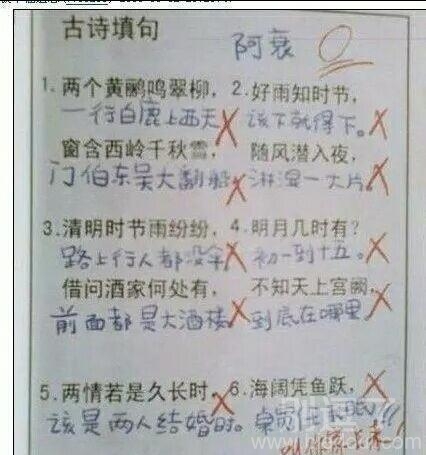 古诗填句
阿衰 0
1. 两个黄鹂鸣翠柳, 2. 好雨知时节,
一行白鹿上西天 该下就得下。
窗含西岭千秋雪, 随风潜入夜,
门伯东吴大副船 淋湿一大片
3. 清明时节雨纷纷, 4. 明月几时有?
路上行人都没伞 初一到十五。
借问酒家何处有, 不知天上宫阙,
前面都是大酒楼 到底在哪里
5. 两情若是久长时, 6. 海阔凭鱼跃,
该是两人结婚时。